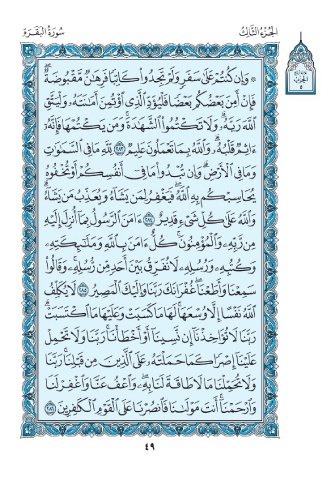 الجزء الثالث
سورة البقرة
۞ وَإِن كُنتُمْ عَلَىٰ سَفَرٍ وَلَمْ تَجِدُوا۟ كَاتِبًا فَرِهَٰنٌ مَّقْبُوضَةٌ ۖ
فَإِنْ أَمِنَ بَعْضُكُم بَعْضًا فَلْيُؤَدِّ ٱلَّذِى ٱؤْتُمِنَ أَمَٰنَتَهُۥ وَلْيَتَّقِ
ٱللَّهَ رَبَّهُۥ ۗ وَلَا تَكْتُمُوا۟ ٱلشَّهَٰدَةَ ۚ وَمَن يَكْتُمْهَا فَإِنَّهُۥٓ
ءَاثِمٌ قَلْبُهُۥ ۗ وَٱللَّهُ بِمَا تَعْمَلُونَ عَلِيمٌ ٢٨٣ لِّلَّهِ مَا فِى ٱلسَّمَٰوَٰتِ
وَمَا فِى ٱلْأَرْضِ ۗ وَإِن تُبْدُوا۟ مَا فِىٓ أَنفُسِكُمْ أَوْ تُخْفُوهُ
يُحَاسِبْكُم بِهِ ٱللَّهُ ۖ فَيَغْفِرُ لِمَن يَشَآءُ وَيُعَذِّبُ مَن يَشَآءُ ۗ
وَٱللَّهُ عَلَىٰ كُلِّ شَىْءٍ قَدِيرٌ ٢٨٤ ءَامَنَ ٱلرَّسُولُ بِمَآ أُنزِلَ إِلَيْهِ
مِن رَّبِّهِۦ وَٱلْمُؤْمِنُونَ ۚ كُلٌّ ءَامَنَ بِٱللَّهِ وَمَلَٰٓئِكَتِهِۦ
وَكُتُبِهِۦ وَرُسُلِهِۦ لَا نُفَرِّقُ بَيْنَ أَحَدٍ مِّن رُّسُلِهِۦ ۚ وَقَالُوا۟
سَمِعْنَا وَأَطَعْنَا ۖ غُفْرَانَكَ رَبَّنَا وَإِلَيْكَ ٱلْمَصِيرُ ٢٨٥ لَا يُكَلِّفُ
ٱللَّهُ نَفْسًا إِلَّا وُسْعَهَا ۚ لَهَا مَا كَسَبَتْ وَعَلَيْهَا مَا ٱكْتَسَبَتْ ۗ
رَبَّنَا لَا تُؤَاخِذْنَآ إِن نَّسِينَآ أَوْ أَخْطَأْنَا ۚ رَبَّنَا وَلَا تَحْمِلْ
عَلَيْنَآ إِصْرًا كَمَا حَمَلْتَهُۥ عَلَى ٱلَّذِينَ مِن قَبْلِنَا ۚ رَبَّنَا
وَلَا تُحَمِّلْنَا مَا لَا طَاقَةَ لَنَا بِهِۦ ۖ وَٱعْفُ عَنَّا وَٱغْفِرْ لَنَا
وَٱرْحَمْنَآ ۚ أَنتَ مَوْلَىٰنَا فَٱنصُرْنَا عَلَى ٱلْقَوْمِ ٱلْكَٰفِرِينَ ٢٨٦
٤٩